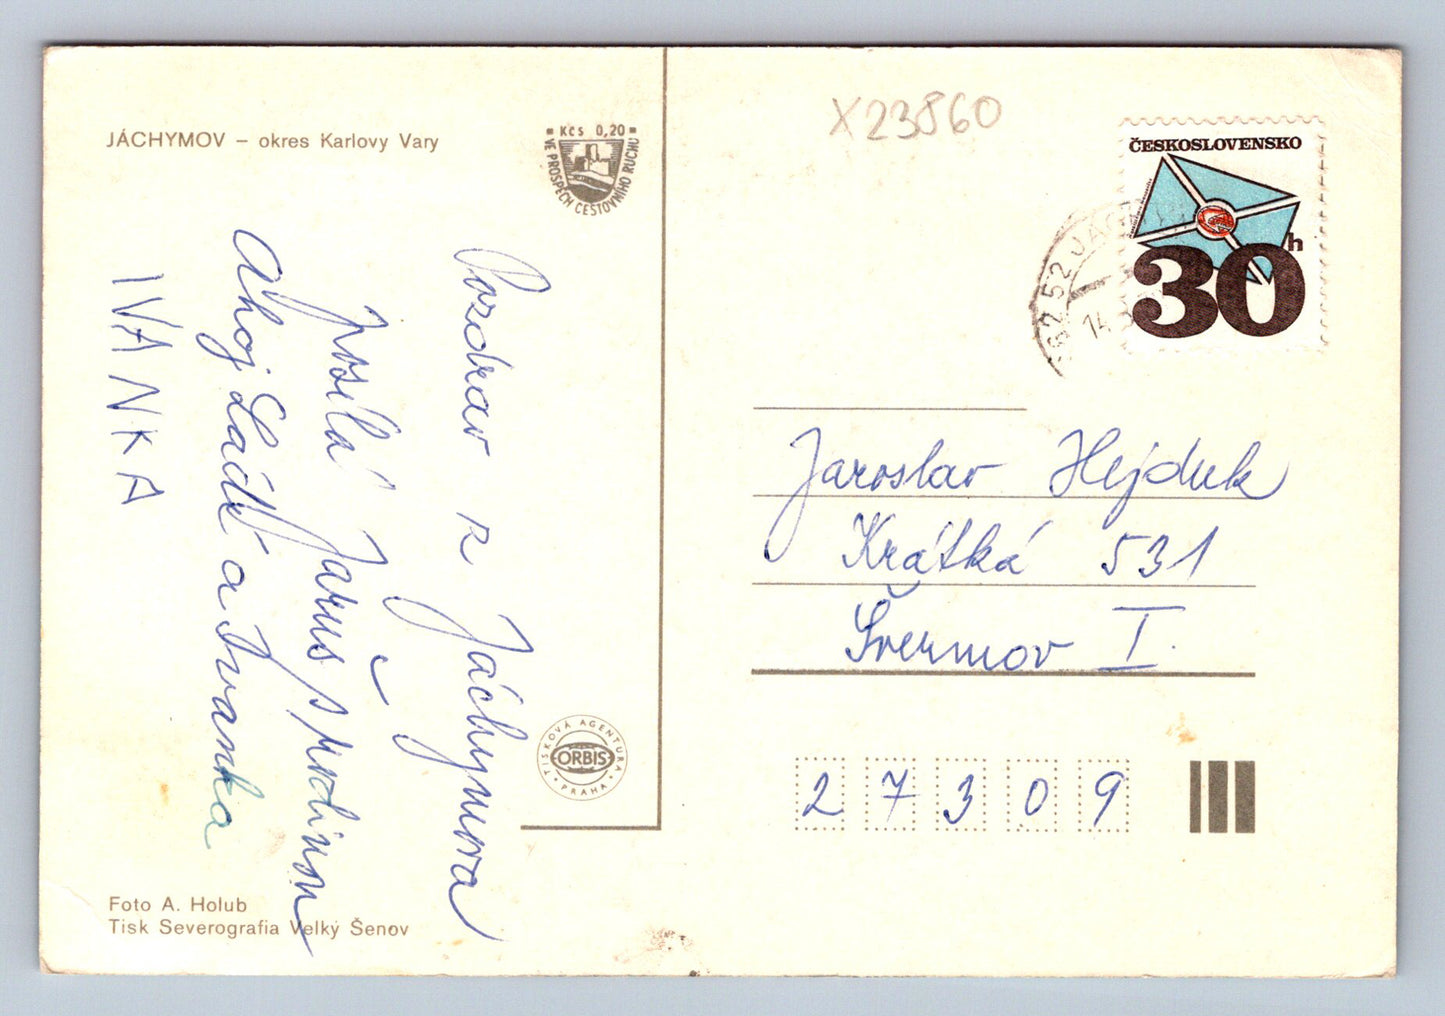 JÁCHYMOV – okres Karlovy Vary
Kčs 0,20
VE PROSPĚCH CESTOVNÍHO RUCHU
Pozdrav z Jáchymova
posílá Jarus s rodinou
Ahoj Láďo a Ivanka
IVANKA
TISKOVÁ AGENTURA
ORBIS
PRAHA
Foto A. Holub
Tisk Severografia Velký Šenov
X23860
ČESKOSLOVENSKO
30h
362 52 JÁCH
14
Jaroslav Hejduk
Krátká 531
Švermov I.
27309